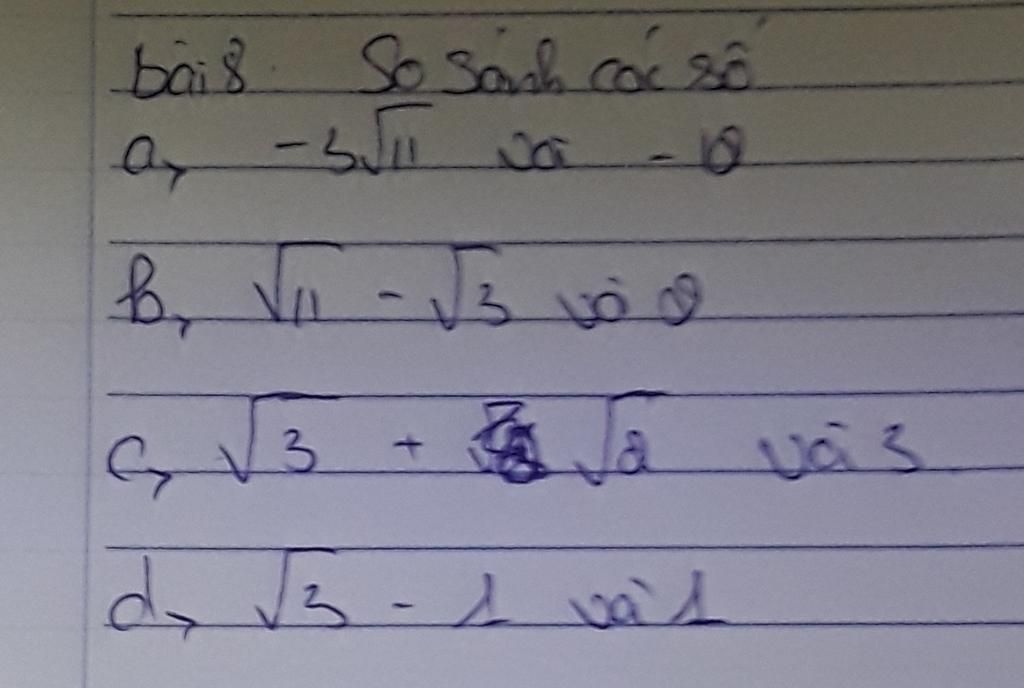 bài 8. So sánh các số
a, -3√11 và - 12
b, √11 - √3 và 2
c, √3 + √2 và 3
d, √3 - 1 và 1